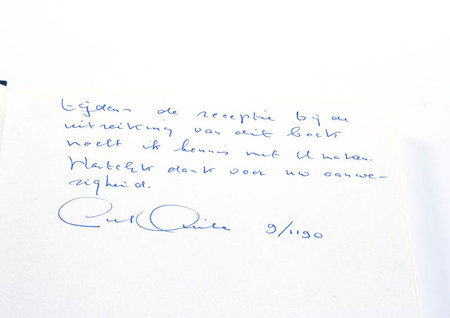 tijdens de receptie bij de
uitreiking van dit boek
mocht ik kennis met U maken.
Hartelijk dank voor uw aanwe-
zigheid.
9/1190